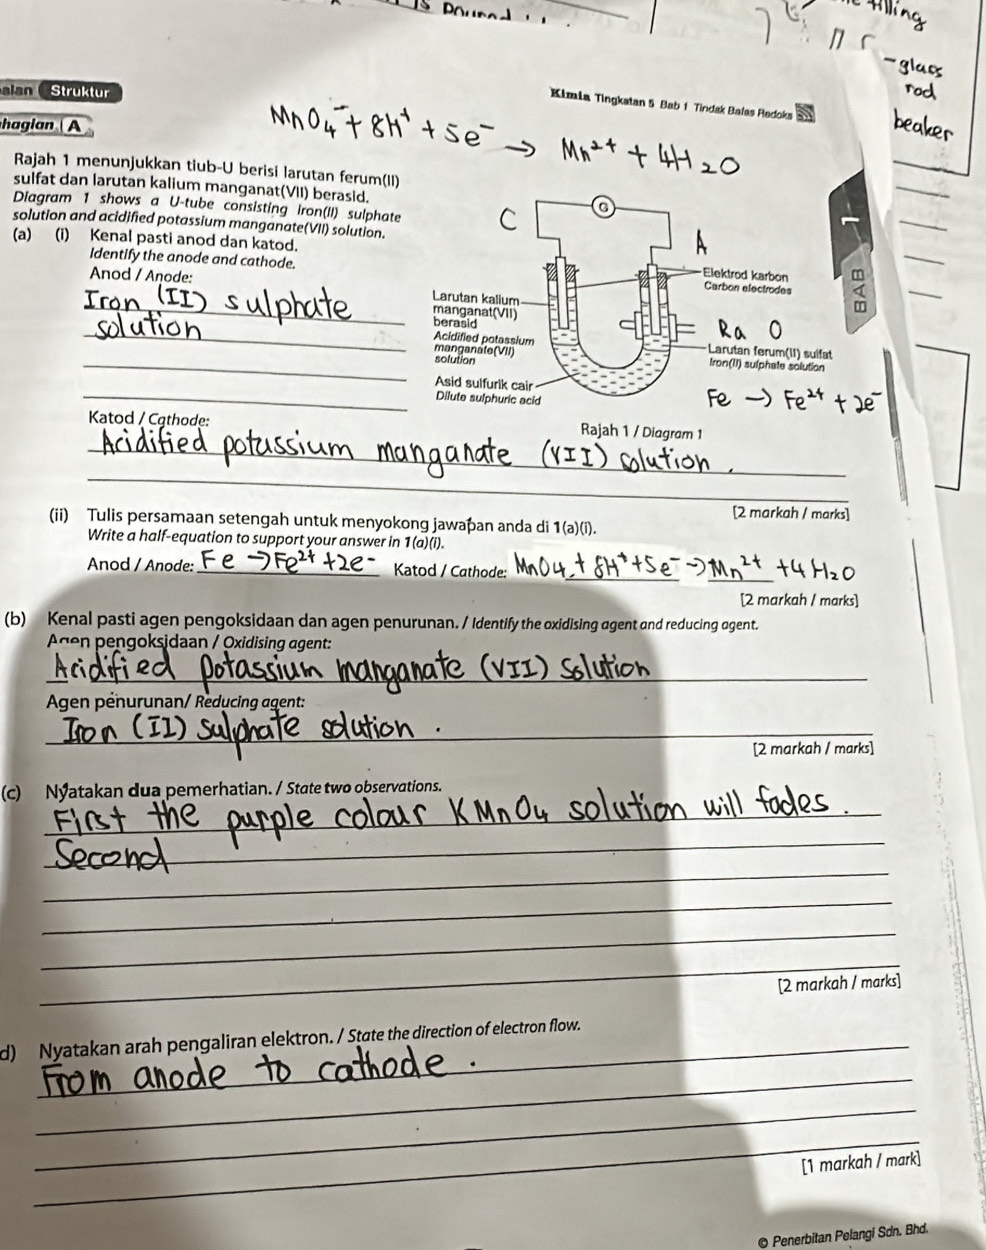 is Pound . .
filling
-glass
rod
beaker
Struktur
Kimia Tingkatan 5 Bab 1 Tindak Balas Redoks
A
MnO₄⁻ + 8H⁺ + 5e⁻ → Mn²⁺ + 4H₂O
Rajah 1 menunjukkan tiub-U berisi larutan ferum(II)
sulfat dan larutan kalium manganat(VII) berasid.
Diagram 1 shows a U-tube consisting iron(II) sulphate
solution and acidified potassium manganate(VII) solution.
(a) (i) Kenal pasti anod dan katod.
Identify the anode and cathode.
Anod / Anode:
Iron (II) sulphate
solution
C
G
A
Elektrod karbon
Carbon electrodes
BAB 1
Larutan kalium
manganat(VII)
berasid
Acidified potassium
manganate(VII)
solution
Ra O
Larutan ferum(II) sulfat
Iron(II) sulphate solution
Asid sulfurik cair
Dilute sulphuric acid
Fe → Fe²⁺ + 2e⁻
Rajah 1 / Diagram 1
Katod / Cathode:
Acidified potassium manganate (VII) solution.
[2 markah / marks]
(ii) Tulis persamaan setengah untuk menyokong jawapan anda di 1(a)(i).
Write a half-equation to support your answer in 1(a)(i).
Anod / Anode: Fe → Fe²⁺ + 2e⁻ Katod / Cathode: MnO₄⁻ + 8H⁺ + 5e⁻ → Mn²⁺ + 4H₂O
[2 markah / marks]
(b) Kenal pasti agen pengoksidaan dan agen penurunan. / Identify the oxidising agent and reducing agent.
Agen pengoksidaan / Oxidising agent:
Acidified potassium manganate (VII) solution
Agen penurunan/ Reducing agent:
Iron (II) sulphate solution .
[2 markah / marks]
(c) Nyatakan dua pemerhatian. / State two observations.
First the purple colour KMnO₄ solution will fades.
Second
[2 markah / marks]
d) Nyatakan arah pengaliran elektron. / State the direction of electron flow.
From anode to cathode .
[1 markah / mark]
© Penerbitan Pelangi Sdn. Bhd.